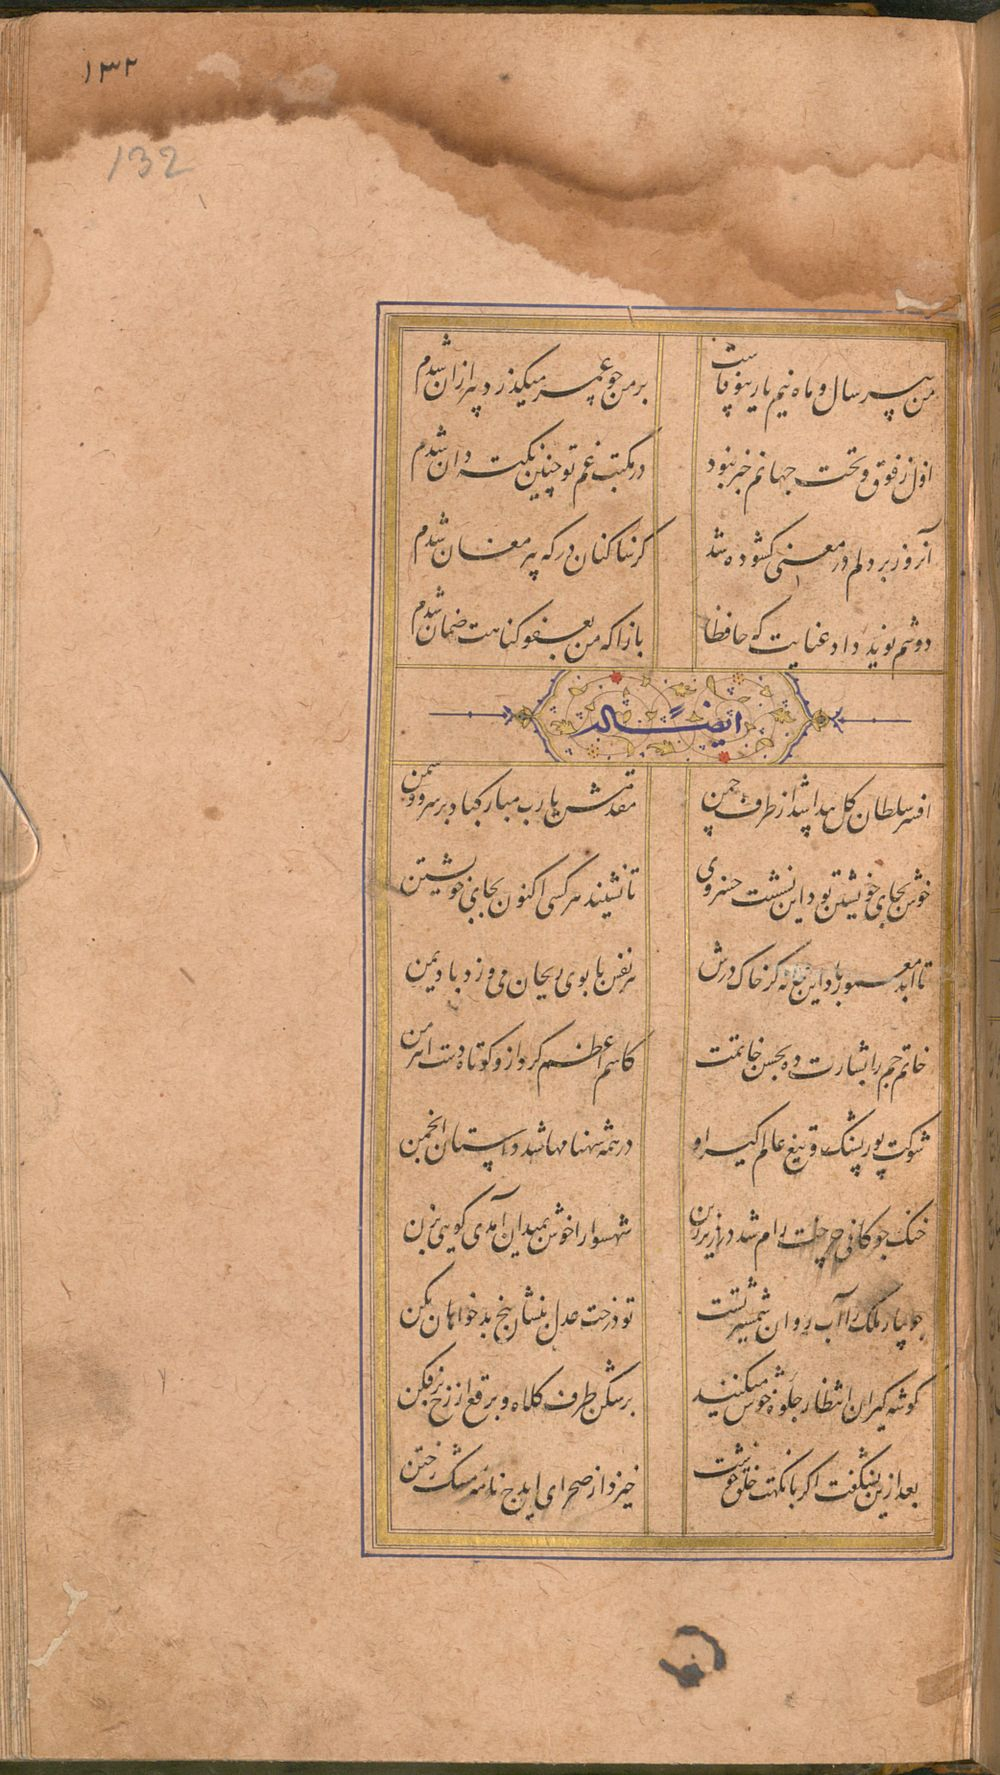 ۱۳۲
132
من پیر سال و ماه نیم یار بیوفاست
بر من چو عمر میکذرد پیر ازان شدم
اول ز فوق و تحت جهانم خبر نبود
در مکتب غم تو چنین نکته دان شدم
آنروز بر دلم در معنی کشوده شد
کز ساکنان درکه پیر مغان شدم
دوشم نوید داد عنایت که حافظا
بازا که من بعفو کناهت ضمان شدم
ایضاً له
افسر سلطان کل پیدا شد از طرف چمن
مقدمش یارب مبارکباد بر سرو و سمن
خوش بجای خویشتن بود این نشست خسروی
تا نشیند هر کسی اکنون بجای خویشتن
تا ابد معمور باد این خانه کز خاک درش
هر نفس با بوی ریحان می وزد باد یمن
خاتم جم را بشارت ده بحسن خاتمت
کاسم اعظم کرد ازو کوتاه دست اهرمن
شوکت پور پشنک و تیغ عالم کیر او
در همه شهنامها شد داستان انجمن
خنک چوکانی چرخت رام شد در زیر زین
شهسوارا خوش بمیدان آمدی کویی بزن
جویبار ملک را آب روان شمشیر تست
تو درخت عدل بنشان بیخ بدخواهان بکن
کوشه کیران انتظار جلوه خوش میکنند
برشکن طرف کلاه و برقع از رخ برفکن
بعد ازین نشکفت اکر با نکهت خلق خوشت
خیزد از صحرای ایذج نافه مشک ختن